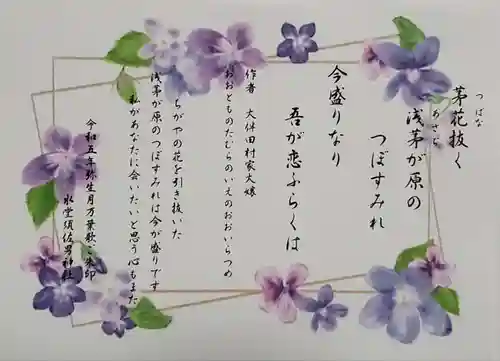 つばな
茅花抜く
あさぢ
浅茅が原の
つぼすみれ
今盛りなり
吾が恋ふらくは
作者 大伴田村家大嬢
おおとものたむらのいえのおおいらつめ
ちがやの花を引き抜いた
浅茅が原のつぼすみれは今が盛りです
私があなたに会いたいと思う心もまた
令和五年弥生月万葉歌ご朱印
氷堂須佐男神社